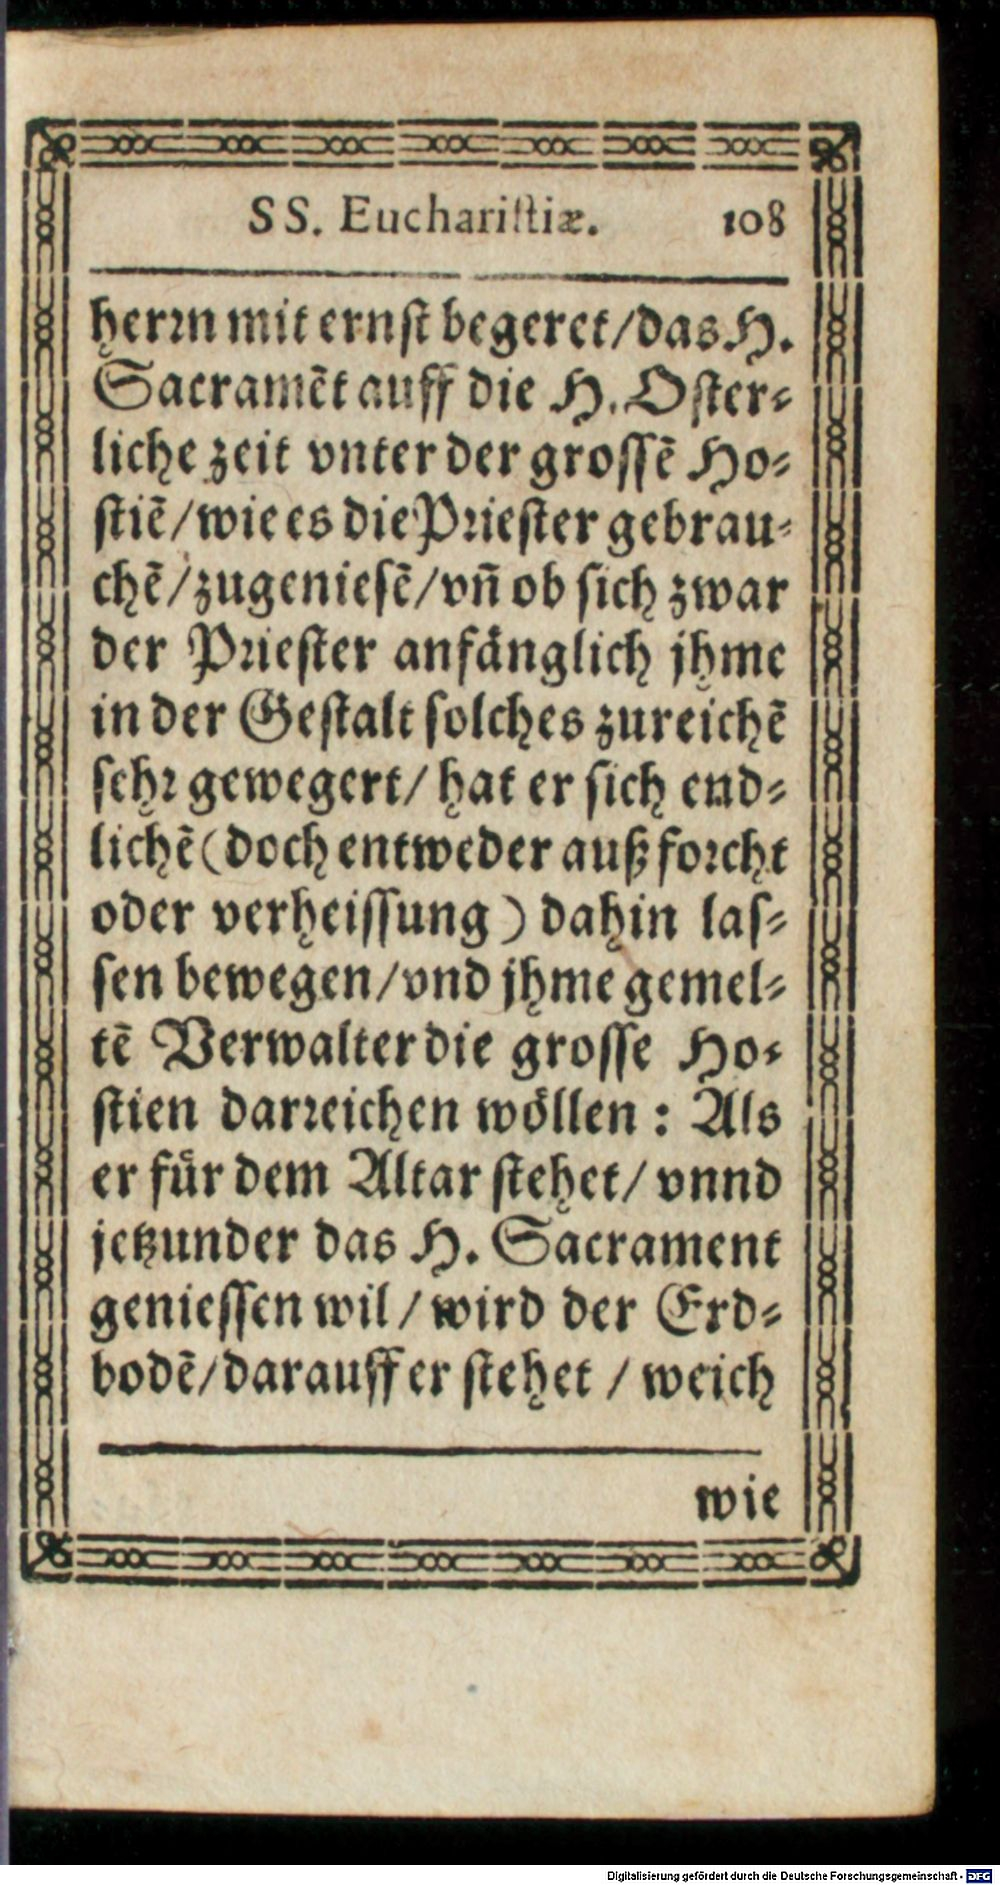 SS. Euchariſtiæ. 108
herꝛn mit ernſt begeret/das H.
Sacramẽt auff die H. Oſter⸗
liche zeit vnter der groſſẽ Ho⸗
ſtiẽ/wie es die Pꝛieſter gebrau⸗
chẽ/zugenieſẽ/vñ ob ſich zwar
der Pꝛieſter anfänglich jhme
in der Geſtalt ſolches zureichẽ
ſehꝛ gewegert/ hat er ſich end⸗
lichẽ (doch entweder auß foꝛcht
oder verheiſſung) dahin laſ⸗
ſen bewegen/vnd jhme gemel⸗
tẽ Verwalter die groſſe Ho⸗
ſtien darꝛeichen wöllen: Als
er für dem Altar ſtehet/ vnnd
jetzunder das H. Sacrament
genieſſen wil/ wird der Erd⸗
bodẽ/darauff er ſtehet / weich
wie
Digitalisierung gefördert durch die Deutsche Forschungsgemeinschaft - DFG